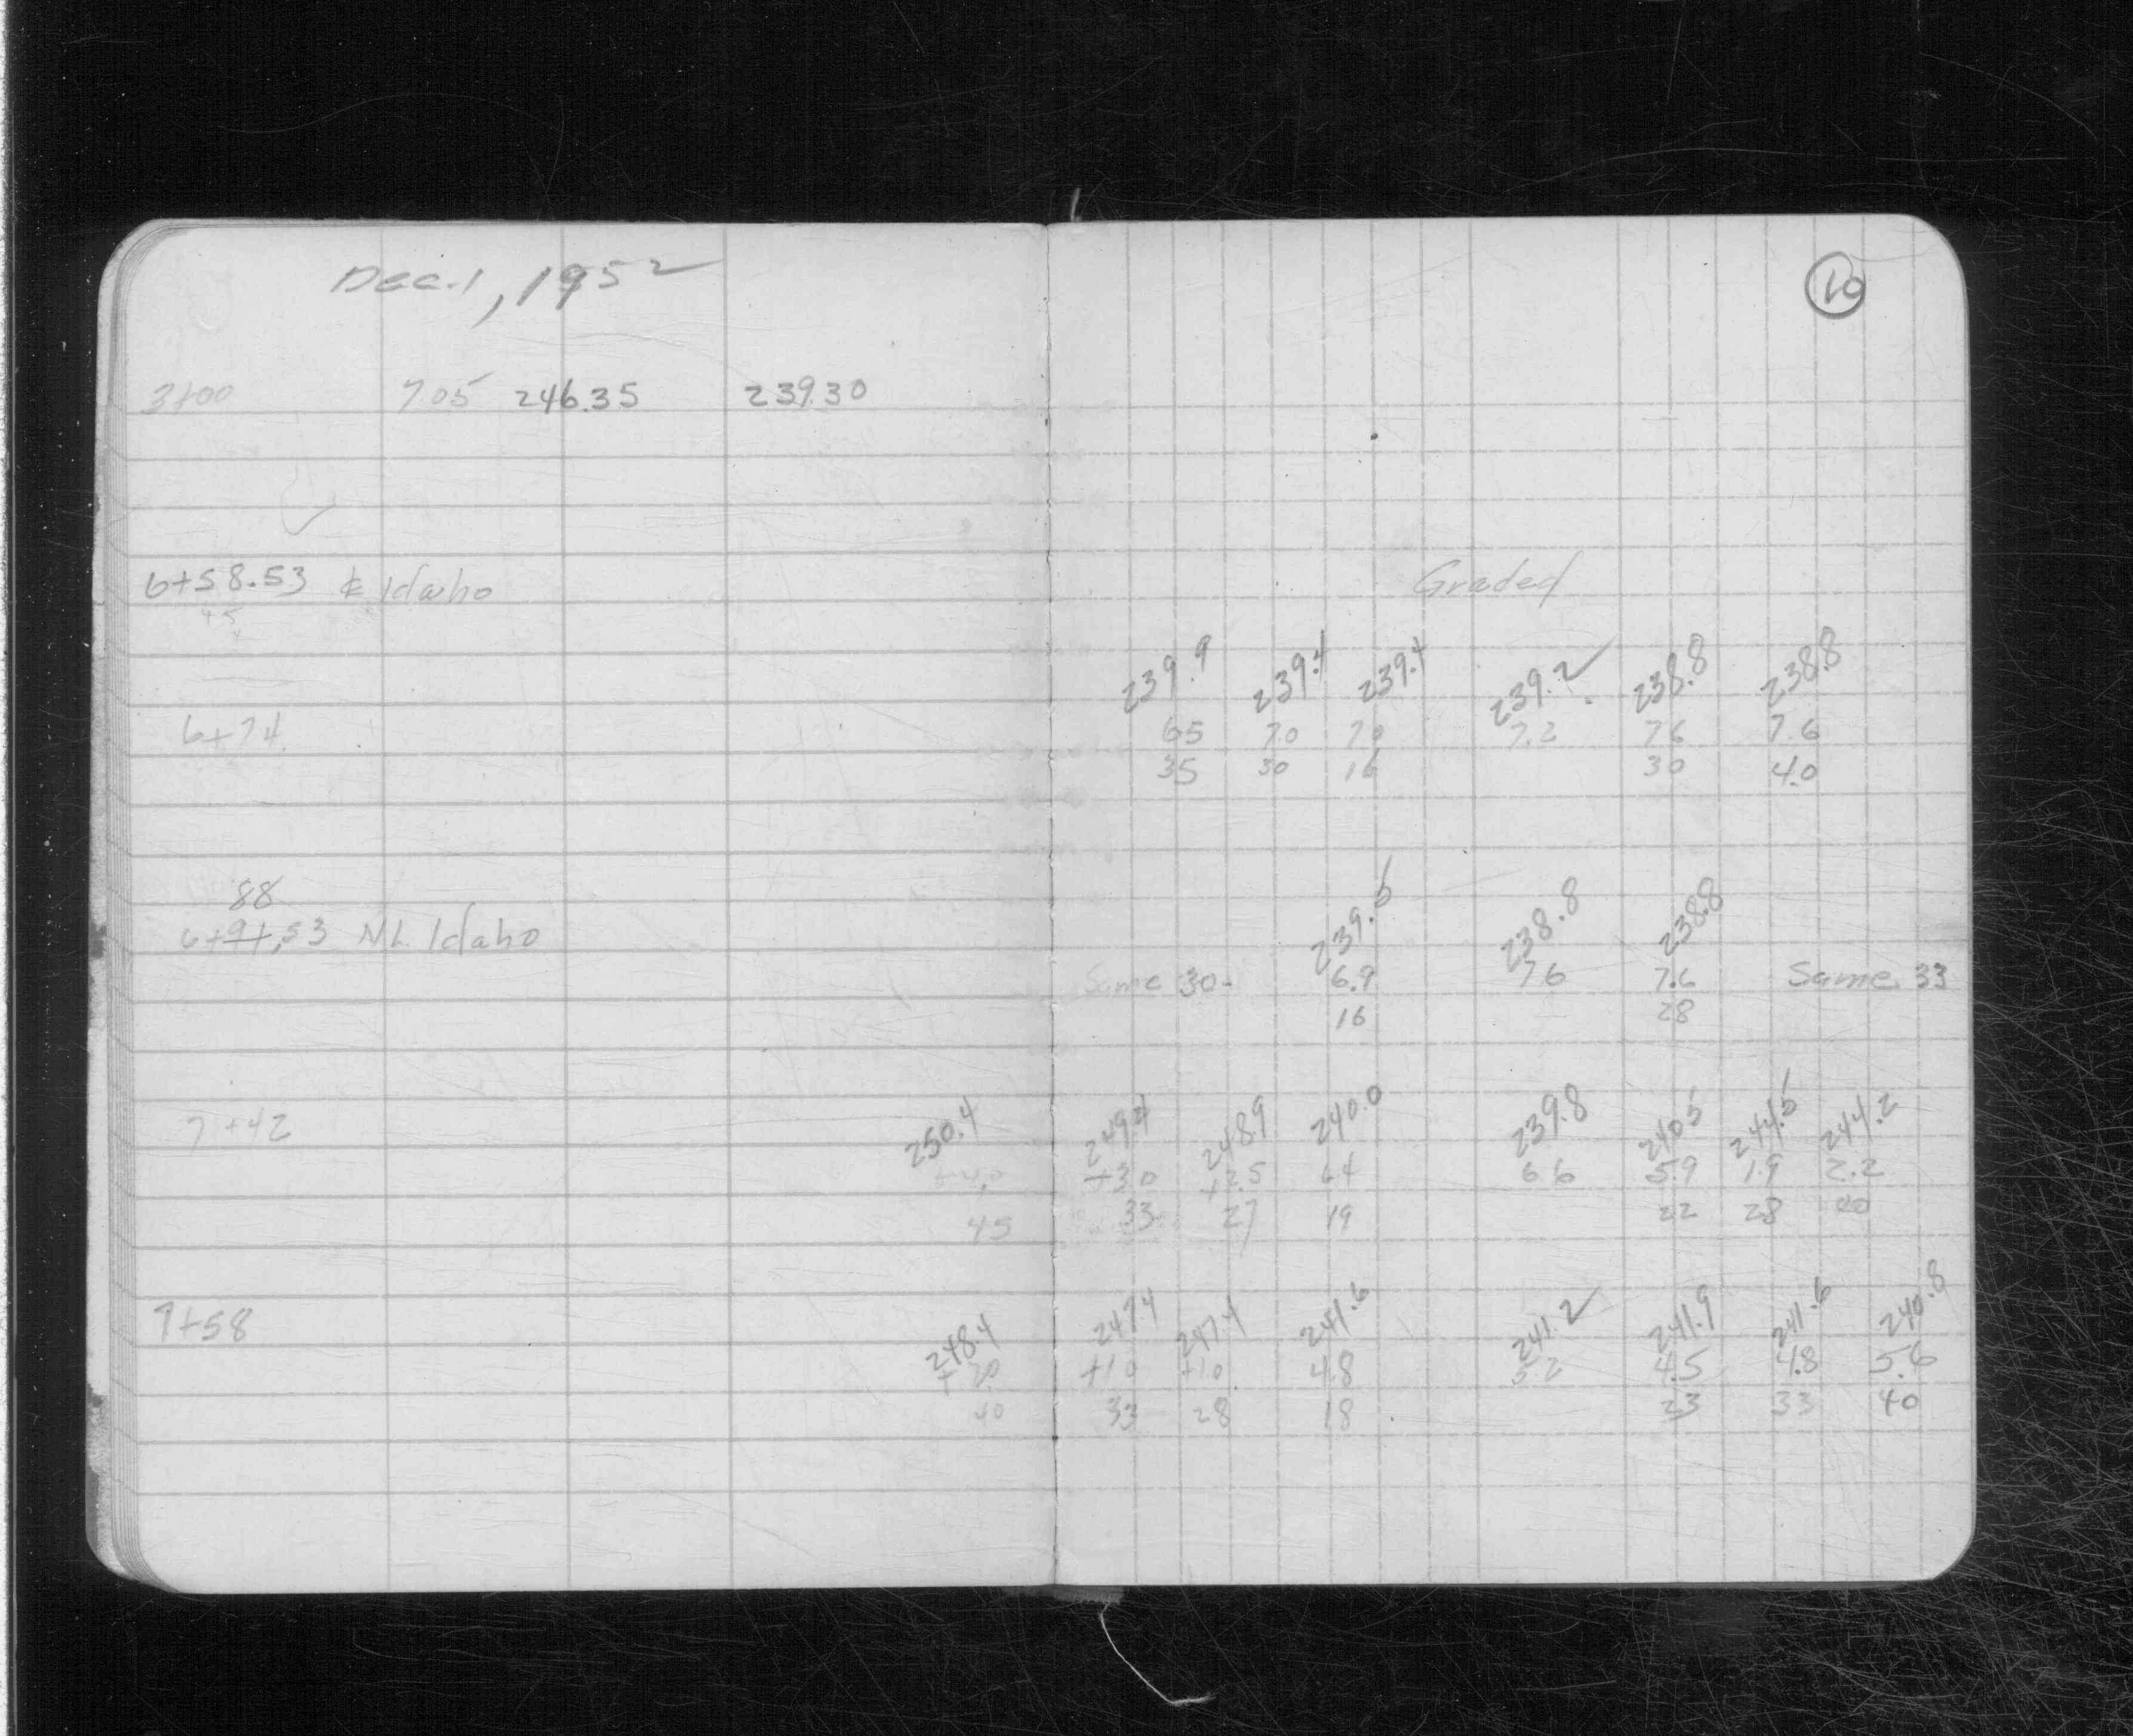 Dec. 1, 1952
10
3+00 7.05 246.35 239.30
6+58.53 ℄ Idaho
+5
Graded
239.9 239.4 239.4 239.2 238.8 238.8
6+74 65 70 70 7.2 76 7.6
35 30 16 30 40
88
6+91.53 N.L. Idaho
239.6 238.8 238.8
Same 30- 6.9 76 7.6 Same 33
16 28
7+42 250.4 249.4 248.9 240.0 239.8 240.5 244.5 244.2
+4.0 +30 +2.5 64 66 59 1.9 2.2
45 33 27 19 22 28 40
7+58 248.4 247.4 247.4 241.6 241.2 241.9 241.6 240.8
+20 +10 +10 4.8 52 4.5 4.8 5.6
40 33 28 18 23 33 40